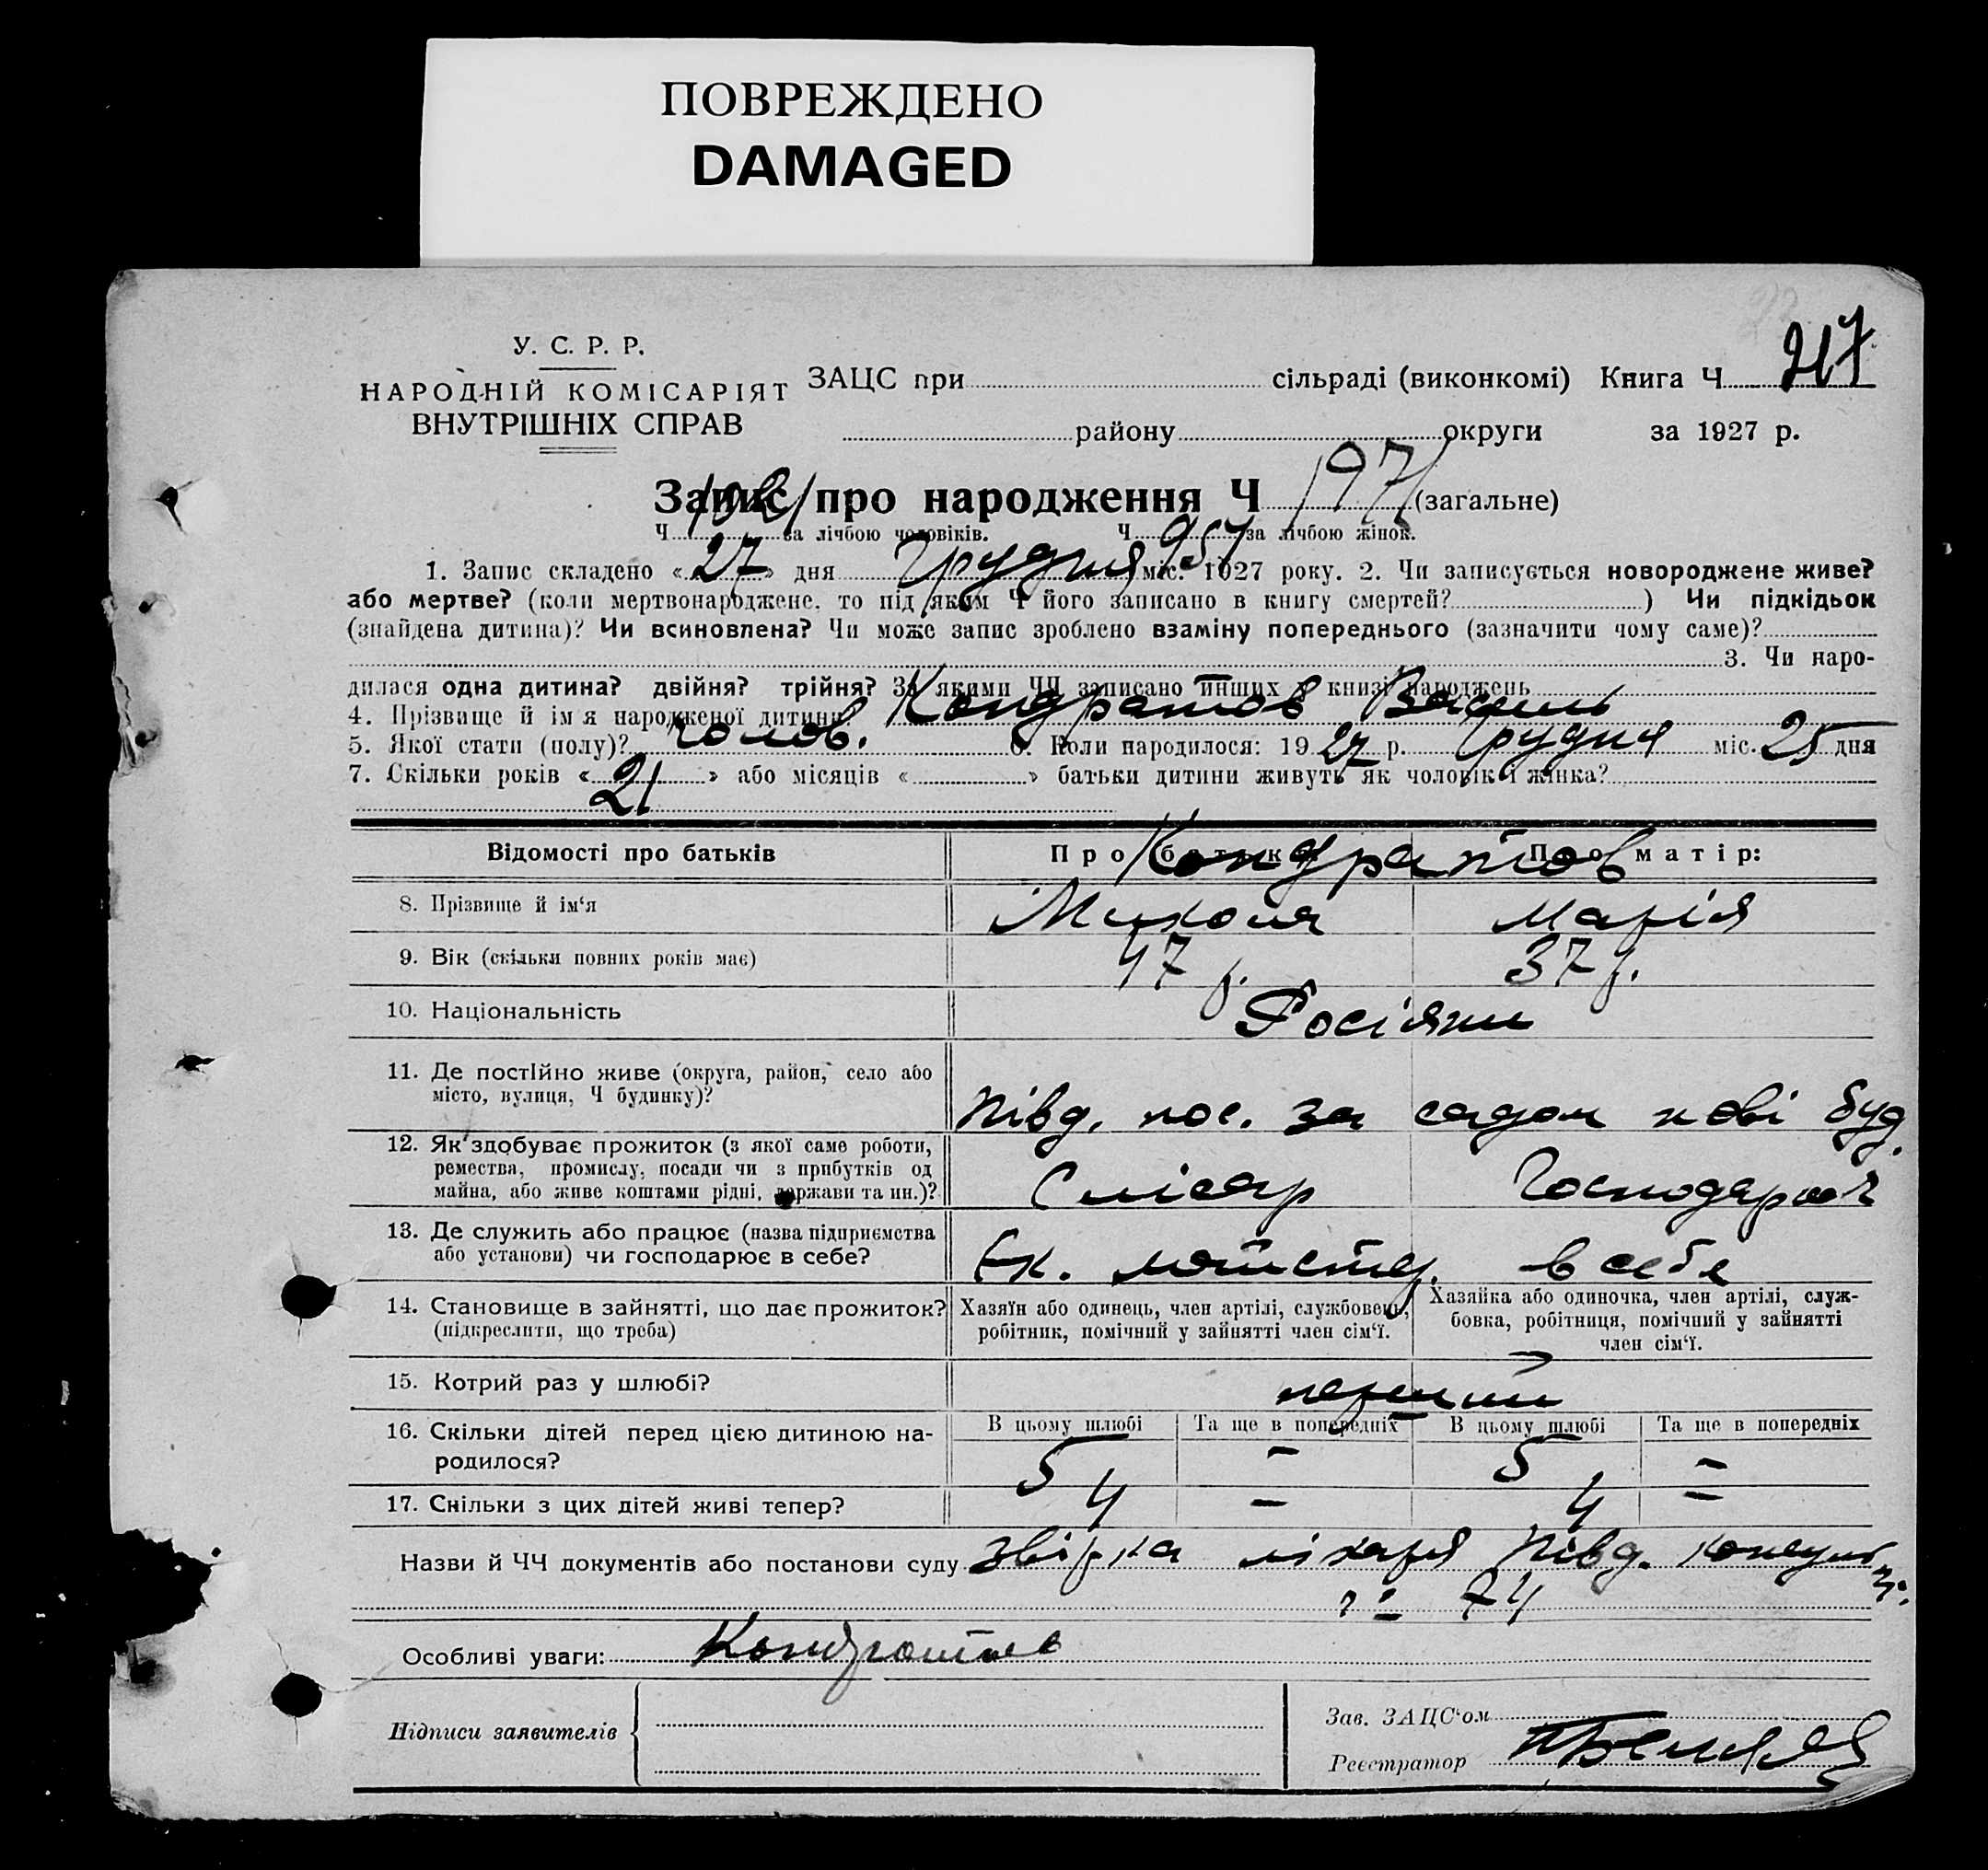 ПОВРЕЖДЕНО
DAMAGED
У. С. Р. Р.
НАРОДНІЙ КОМІСАРІЯТ
ВНУТРІШНІХ СПРАВ
ЗАЦС при сільраді (виконкомі) Книга Ч 217
району округи за 1927 р.
Запис про народження Ч 1971 (загальне)
Ч 1021 за лічбою чоловіків. Ч 951 за лічбою жінок.
1. Запис складено « 27 » дня Грудня міс. 1927 року. 2. Чи записується новороджене живе?
або мертве? (коли мертвонароджене, то під яким Ч його записано в книгу смертей? ) Чи підкідьок
(знайдена дитина)? Чи всиновлена? Чи може запис зроблено взаміну попереднього (зазначити чому саме)?
3. Чи наро-
дилася одна дитина? двійня? трійня? За якими ЧЧ записано инших у книзі народжень
4. Прізвище й ім'я народженої дитини Кондратов Василь
5. Якої стати (полу)? чолов. 6. Коли народилося: 19 27 р. Грудня міс. 25 дня
7. Скільки років « 21 » або місяців « » батьки дитини живуть як чоловік і жінка?
Відомості про батьків Про батька: Про матір:
Кондратов
8. Прізвище й ім'я Микола Марія
9. Вік (скільки повних років має) 47 р. 37 р.
10. Національність Росіяни
11. Де постійно живе (округа, район, село або
місто, вулиця, Ч будинку)? Півд. пос. за садом нові буд.
12. Як здобуває прожиток (з якої саме роботи,
ремества, промислу, посади чи з прибутків од
майна, або живе коштами рідні, держави та ин.)? Слісар Господар
13. Де служить або працює (назва підприємства
або установи) чи господарює в себе? Ек. в себе
14. Становище в зайнятті, що дає прожиток?
(підкреслити, що треба)
Хазяїн або одинець, член артілі, службовець,
робітник, помічний у зайнятті член сім'ї.
Хазяйка або одиночка, член артілі, служ-
бовка, робітниця, помічний у зайнятті
член сім'ї.
15. Котрий раз у шлюбі? перший
В цьому шлюбі Та ще в попередніх В цьому шлюбі Та ще в попередніх
16. Скільки дітей перед цією дитиною на-
родилося? 5 – 5 –
17. Скільки з цих дітей живі тепер? 4 – 4 –
Назви й ЧЧ документів або постанови суду Звірка лікаря Півд. консульт.
74
Особливі уваги: Кондратов
Підписи заявителів
Зав. ЗАЦС'ом
Реєстратор